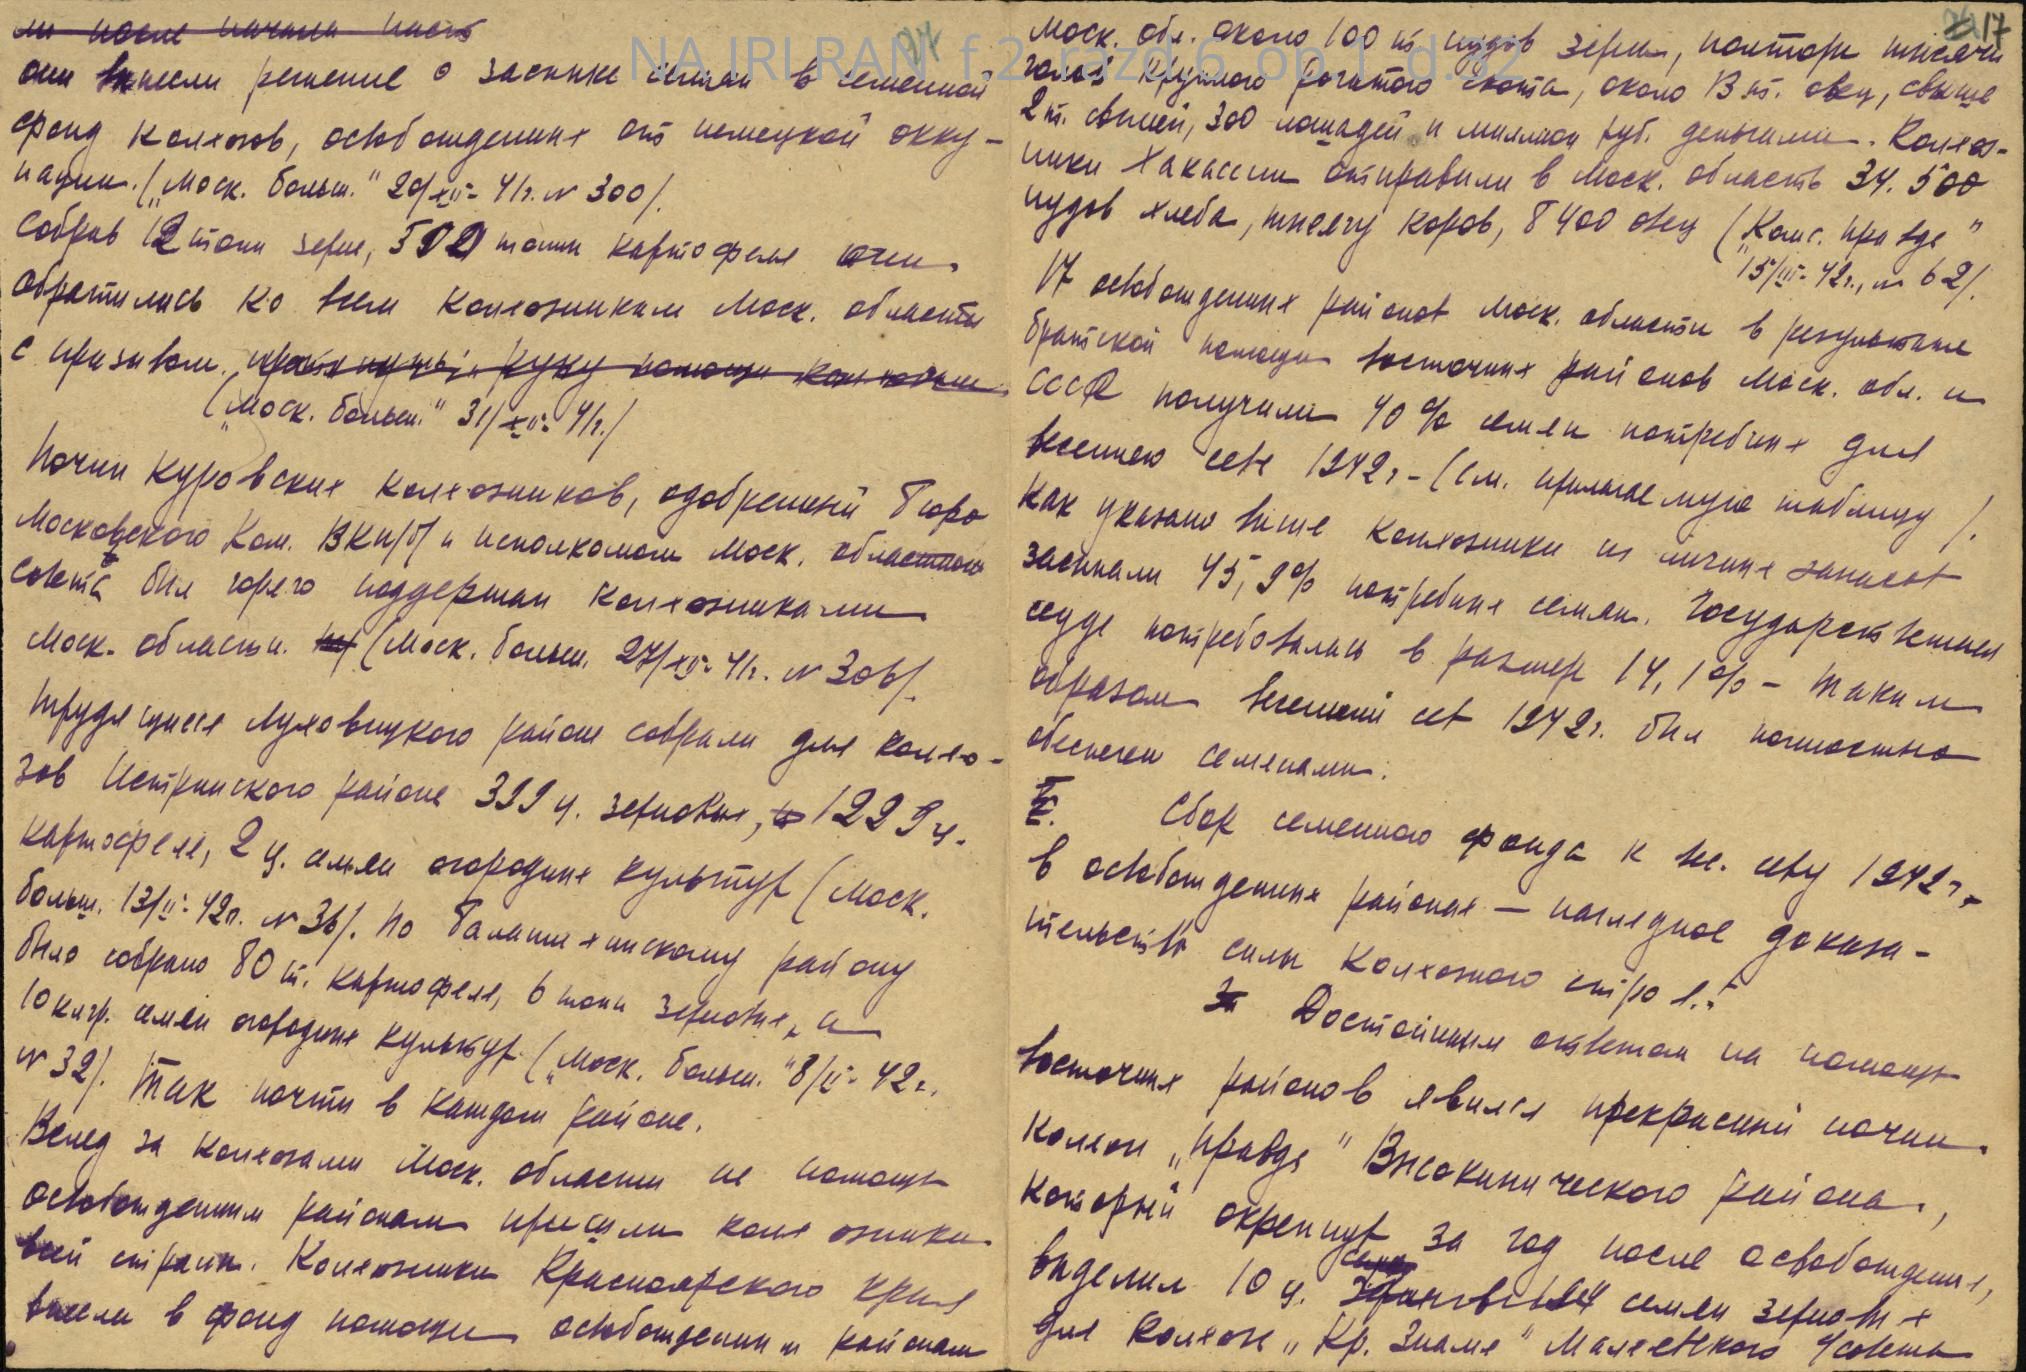 ли после начала
они внесли решение о засыпке семян в семенной
фонд колхозов, освобожденных от немецкой окку-
пации. („Моск. больш." 20/XII- 41г. № 300/.
Собрав 12 тонн зерна, 502 тонны картофеля они
обратились ко всем колхозникам Моск. области
с призывом протянуть руку помощи колхозам
(„Моск. больш." 31/XII- 41г./
Почин Куровских колхозников, одобренный Бюро
Московского Ком. ВКП/б/ и исполкомом Моск. областного
совета был горячо поддержан колхозниками
Моск. области. (Моск. больш. 27/XII- 41г. № 306/.
Трудящиеся Луховицкого района собрали для колхо-
зов Истринского района 399 ц. зерновых, 1229 ц.
картофеля, 2 ц. семян огородных культур (Моск.
больш. 13/II- 42г. № 36/. По Балашихинскому району
было собрано 80 т. картофеля, 6 тонн зерновых, и
10 клгр. семян огородных культур. („Моск. больш. "8/II- 42г.
№ 32/. Так почти в каждом районе.
Вслед за колхозами Моск. области на помощь
освобожденным районам пришли колхозники
всей страны. Колхозники Красноярского края
внесли в фонд помощи освобожденным районам
NA IRI RAN f.2 razd.6 op.1 d.32
17
Моск. обл. около 100 т. пудов зерна, полторы тысячи
голов крупного рогатого скота, около 13 т. овец, свыше
2 т. свиней, 300 лошадей и миллион руб. деньгами. Колхоз-
ники Хакассии отправили в Моск. область 34.500
пудов хлеба, тысячу коров, 8400 овец („Комс. правда"
15/III- 42г., № 62/.
17 освобожденных районов Моск. области в результате
братской помощи восточных районов Моск. обл. и
СССР получили 40% семян потребных для
весеннего сева 1942г - (см. прилагаемую таблицу/.
Как указано выше колхозники из личных запасов
засыпали 45,9% потребных семян. Государственная
ссуда потребовалась в размере 14,1% - Таким
образом весенний сев 1942г. был полностью
обеспечен семенами.
Сбор семенного фонда к вес. севу 1942г.
в освобожденных районах — наглядное доказа-
тельство силы колхозного строя.
Достойным ответом на помощь
восточных районов явился прекрасный почин
колхоза „Правда" Высокиничского района,
который окрепнув за год после освобождения,
выделил 10 ц. семян зерновых
для колхоза „Кр. Знамя" Малеевского с/совета